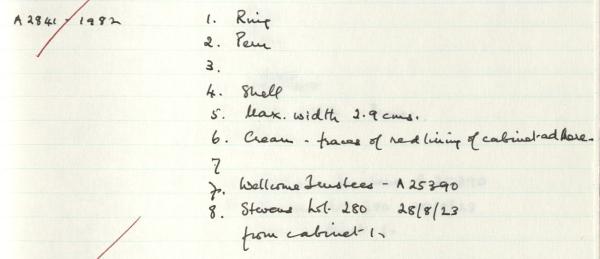 A2841 - 1982
1. Ring
2. Peru
3.
4. Shell
5. Max. width 2.9 cms.
6. Cream - traces of red lining of cabinet adhere.
7
7. Wellcome Trustees - A25390
8. Stevens Lot. 280 28/8/23
from cabinet 1.